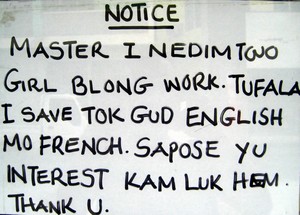 NOTICE
MASTER I NEDIM TWO
GIRL BLONG WORK. TUFALA
I SAVE TOK GUD ENGLISH
MO FRENCH. SAPOSE YU
INTEREST KAM LUK HEM.
THANK U.